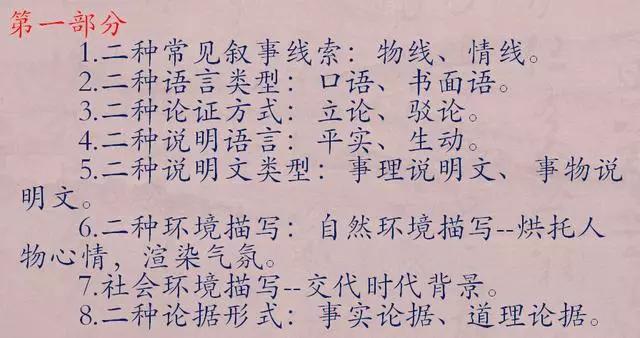 第一部分
1.二种常见叙事线索：物线、情线。
2.二种语言类型：口语、书面语。
3.二种论证方式：立论、驳论。
4.二种说明语言：平实、生动。
5.二种说明文类型：事理说明文、事物说
明文。
6.二种环境描写：自然环境描写--烘托人
物心情，渲染气氛。
7.社会环境描写--交代时代背景。
8.二种论据形式：事实论据、道理论据。